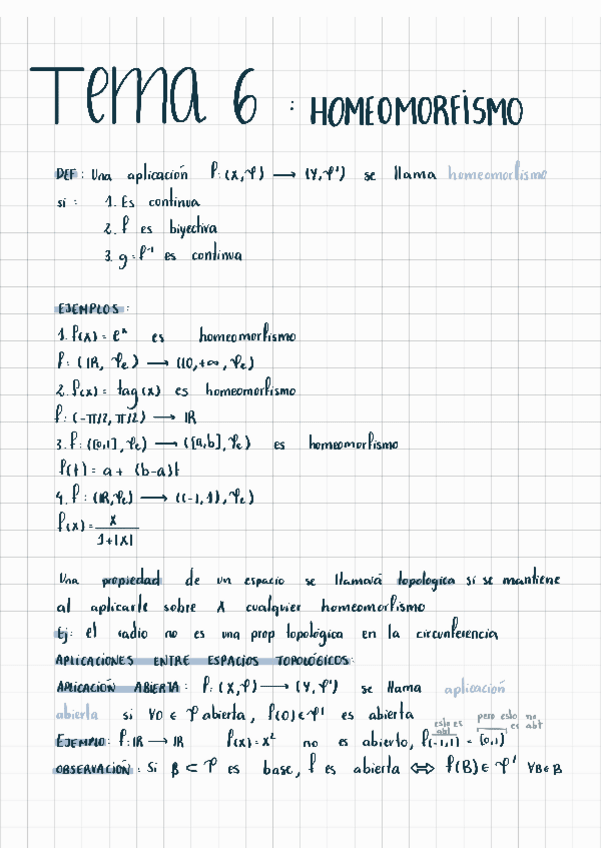 Tema 6 : HOMEOMORFISMO
DEF: Una aplicación f: (X,𝒯) → (Y,𝒯') se llama homeomorfismo
si : 1. Es continua
2. f es biyectiva
3. g = f⁻¹ es continua
EJEMPLOS:
1. f(x) = eˣ es homeomorfismo
f: (ℝ, 𝒯e) → ((0,+∞, 𝒯e)
2. f(x) = tag(x) es homeomorfismo
f: (-π/2, π/2) → ℝ
3. f: ([0,1], 𝒯e) → ([a,b], 𝒯e) es homeomorfismo
f(t) = a + (b-a)t
4. f: (ℝ, 𝒯e) → ((-1,1), 𝒯e)
f(x) = x / 1+|x|
Una propiedad de un espacio se llamará topológica si se mantiene
al aplicarle sobre X cualquier homeomorfismo
Ej: el radio no es una prop topológica en la circunferencia
APLICACIONES ENTRE ESPACIOS TOPOLÓGICOS:
APLICACIÓN ABIERTA: f: (X,𝒯) → (Y,𝒯') se llama aplicación
abierta si ∀O ∈ 𝒯 abierta, f(O) ∈ 𝒯' es abierta
esto es abt pero esto no es abt
EJEMPLO: f: ℝ → ℝ f(x) = x² no es abierto, f(-1,1) = [0,1)
OBSERVACIÓN: Si β ⊂ 𝒯 es base, f es abierta ⇔ f(B) ∈ 𝒯' ∀B∈β